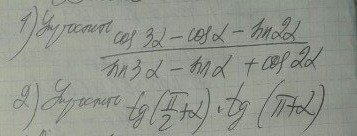 1) Упростить
cos 3α - cos α - sin 2α
sin 3α - sin α + cos 2α
2) Упростить tg(π/2+α) · tg(π+α)